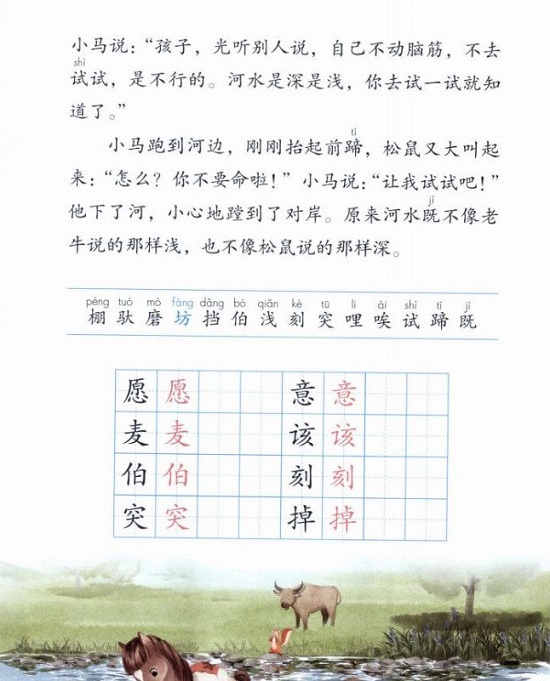 小马说：“孩子，光听别人说，自己不动脑筋，不去
shì
试试，是不行的。河水是深是浅，你去试一试就知
道了。”
tí
小马跑到河边，刚刚抬起前蹄，松鼠又大叫起
来：“怎么？你不要命啦！”小马说：“让我试试吧！”
jì
他下了河，小心地蹚到了对岸。原来河水既不像老
牛说的那样浅，也不像松鼠说的那样深。
péng tuó mò fáng dǎng bó qiǎn kè tū li āi shì tí jì
棚 驮 磨 坊 挡 伯 浅 刻 突 哩 唉 试 蹄 既
愿 愿 意 意
麦 麦 该 该
伯 伯 刻 刻
突 突 掉 掉